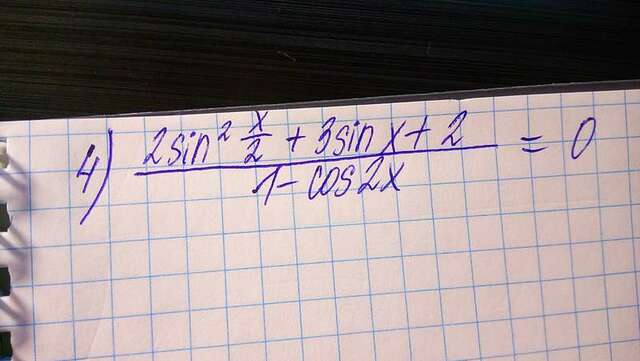 4) (2sin² x/2 + 3sin x + 2)/(1 - cos2x) = 0